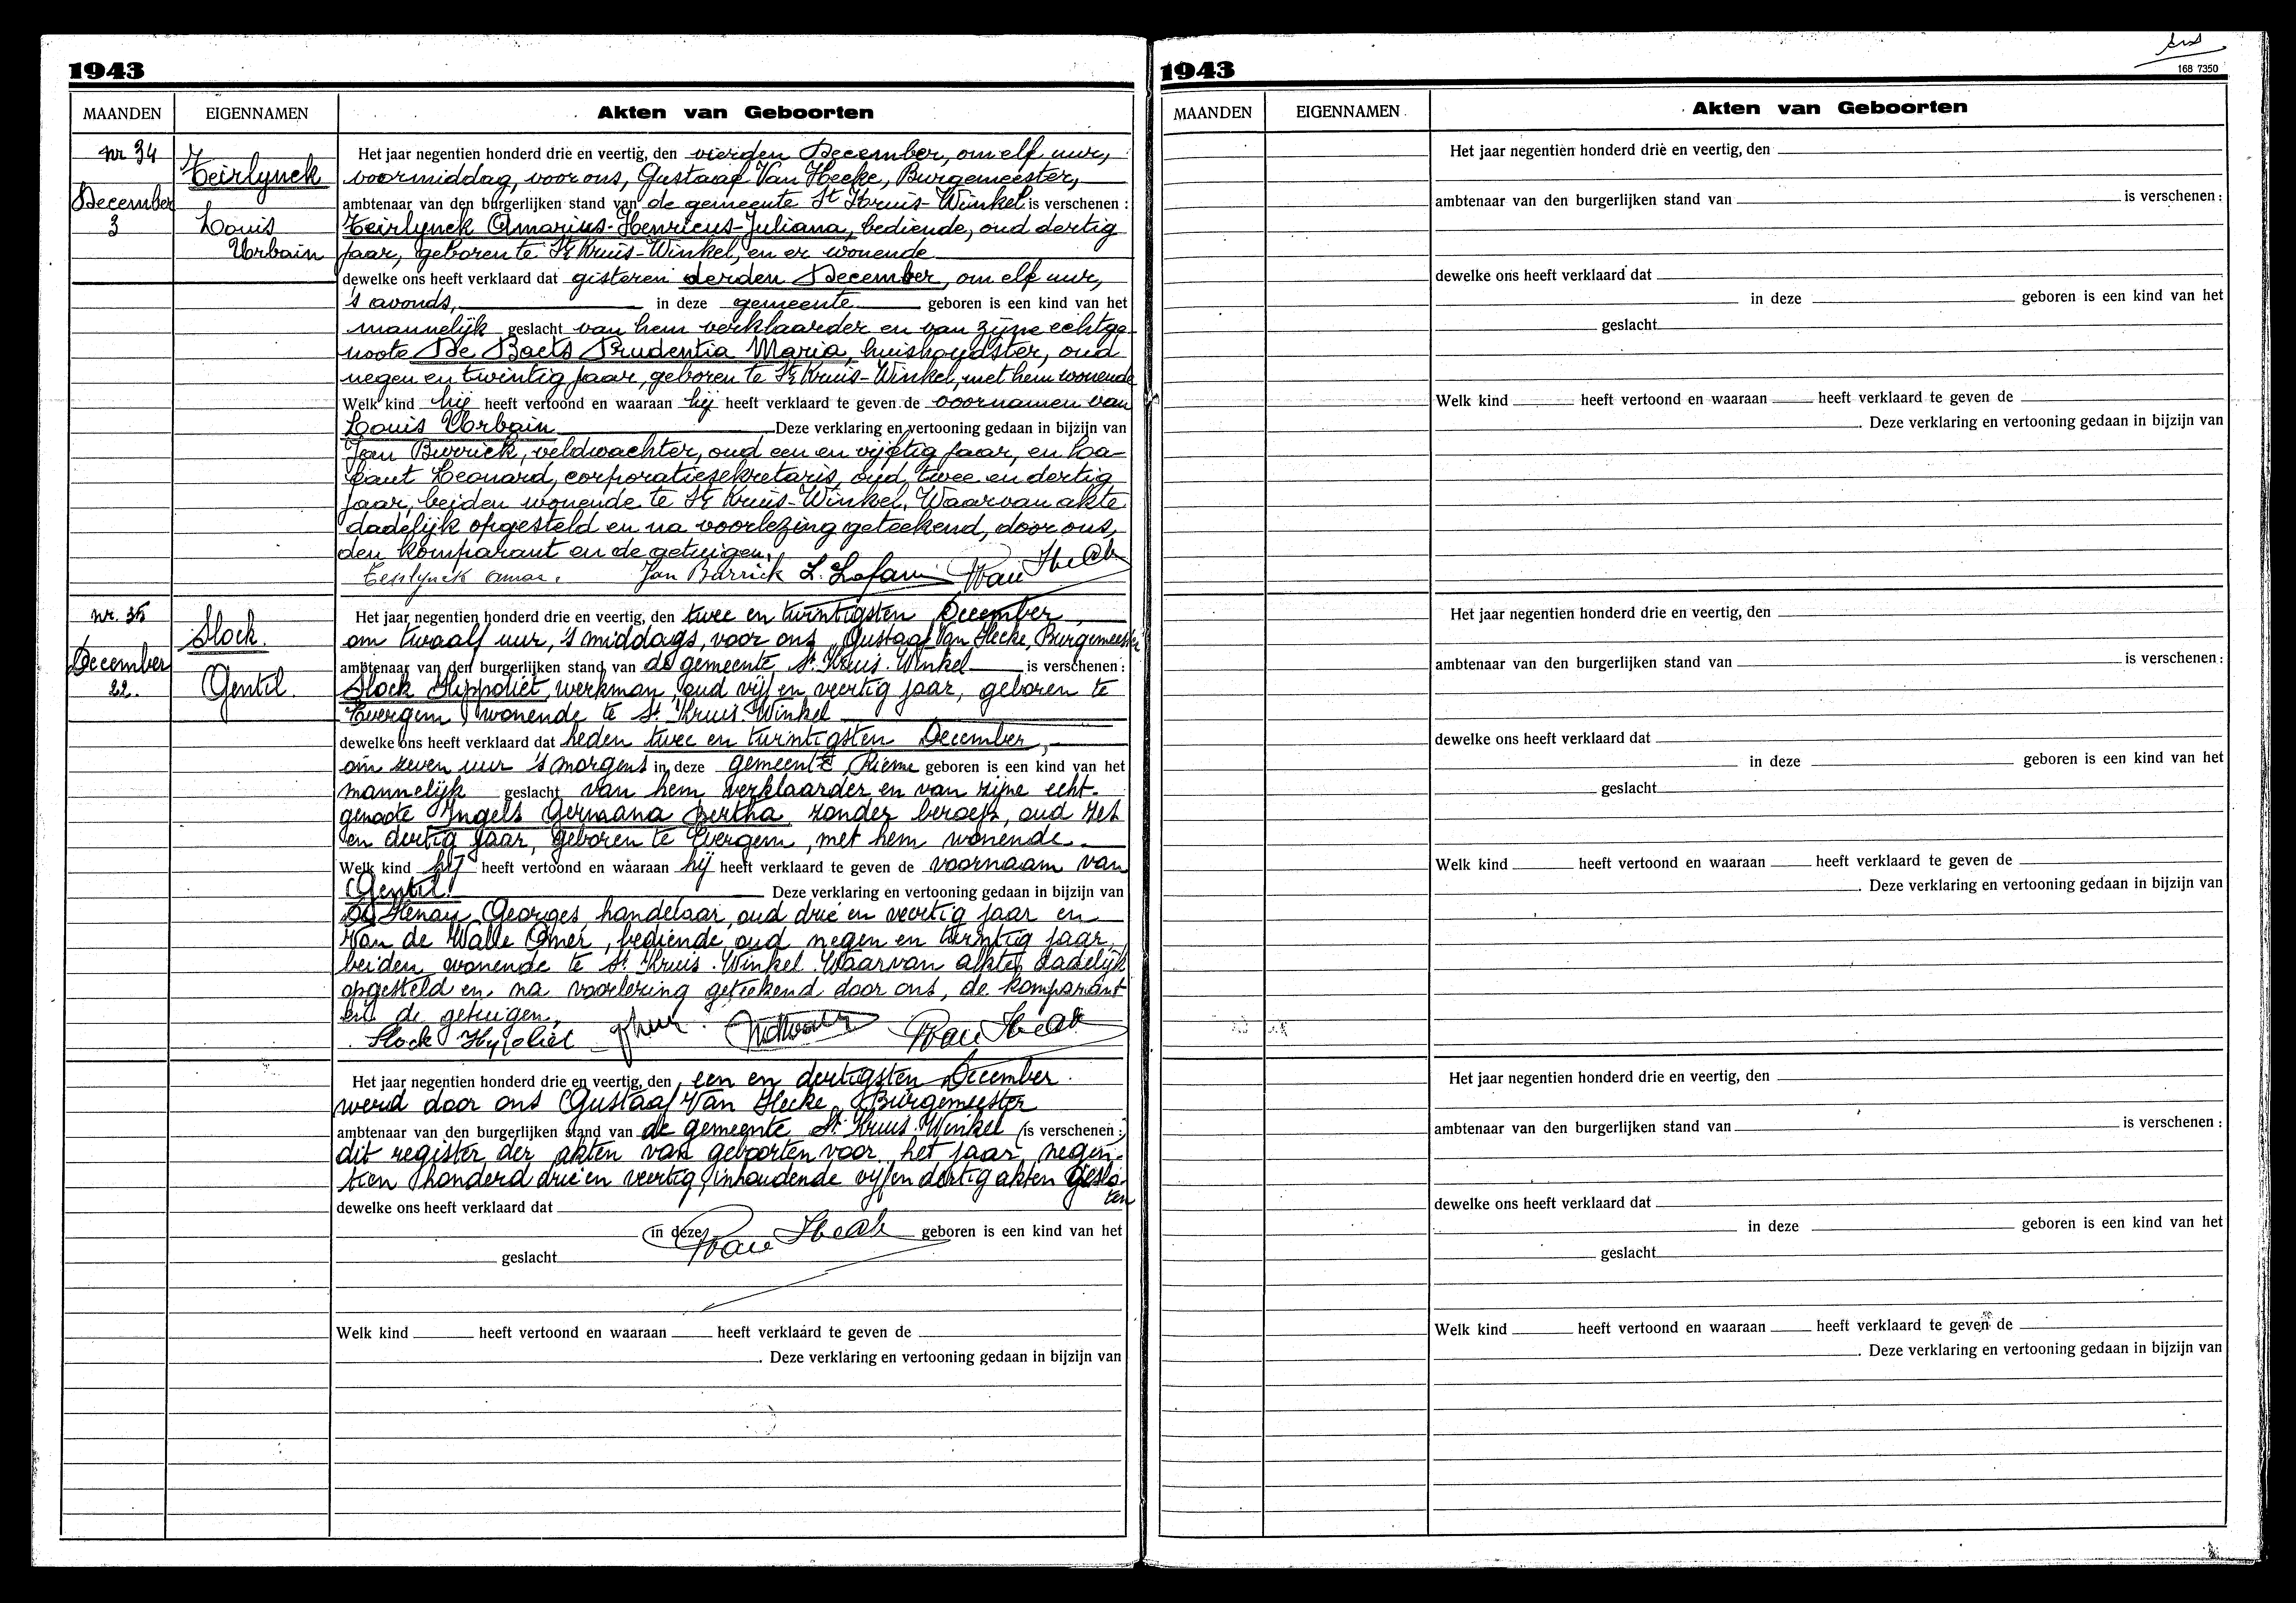 1943
MAANDEN EIGENNAMEN Akten van Geboorten
nr 34
Teirlynck
December
3
Louis
Urbain
Het jaar negentien honderd drie en veertig, den vierden December, om elf uur,
voormiddag, voor ons, Gustaaf Van Hecke, Burgemeester,
ambtenaar van den burgerlijken stand van de gemeente St Kruis-Winkel is verschenen :
Teirlynck Omarius-Henricus-Juliana, bediende, oud dertig
jaar, geboren te St Kruis-Winkel, en er wonende
dewelke ons heeft verklaard dat gisteren derden December, om elf uur,
's avonds, in deze gemeente geboren is een kind van het
mannelijk geslacht van hem verklaarder en van zijne echtge
noote De Baets Prudentia Maria, huishoudster, oud
negen en twintig jaar, geboren te St Kruis-Winkel, met hem wonende
Welk kind hij heeft vertoond en waaraan hij heeft verklaard te geven de voornamen van
Louis Urbain Deze verklaring en vertooning gedaan in bijzijn van
Jan Burrick, veldwachter, oud een en vijftig jaar, en La-
Leonard, corporatiesekretaris, oud twee en dertig
jaar, beiden wonende te St Kruis-Winkel. Waarvan akte
dadelijk opgesteld en na voorlezing geteekend, door ons,
den komparant en de getuigen.
Teirlynck Omar. Jan Burrick L.
nr. 35
Slock
December
22.
Gentil.
Het jaar negentien honderd drie en veertig, den twee en twintigsten December,
om twaalf uur, 's middags, voor ons, Gustaaf Van Hecke, Burgemeester
ambtenaar van den burgerlijken stand van de gemeente St. Kruis-Winkel is verschenen :
Slock Hippoliet, werkman, oud vijf en veertig jaar, geboren te
Evergem, wonende te St. Kruis-Winkel
dewelke ons heeft verklaard dat heden twee en twintigsten December,
om zeven uur 's morgens in deze gemeente Rieme geboren is een kind van het
mannelijk geslacht van hem verklaarder en van zijne echt-
genoote Ingels Germana Bertha, zonder beroep, oud zes
en dertig jaar, geboren te Evergem, met hem wonende.
Welk kind hij heeft vertoond en waaraan hij heeft verklaard te geven de voornaam van
Gentil. Deze verklaring en vertooning gedaan in bijzijn van
Georges, handelaar, oud drie en veertig jaar en
Van de Walle Omer, bediende, oud negen en twintig jaar,
beiden wonende te St. Kruis-Winkel. Waarvan akte, dadelijk
opgesteld en na voorlezing geteekend door ons, de komparant
en de getuigen.
Slock Hypoliet
Het jaar negentien honderd drie en veertig, den een en dertigsten December.
werd door ons Gustaaf Van Hecke, Burgemeester
ambtenaar van den burgerlijken stand van de gemeente St. Kruis-Winkel (is verschenen :)
dit register der akten van geboorten voor het jaar negen-
tien honderd drie en veertig, inhoudende vijf en dertig akten geslo-
ten
dewelke ons heeft verklaard dat
(in deze) geboren is een kind van het
geslacht
Welk kind heeft vertoond en waaraan heeft verklaard te geven de
. Deze verklaring en vertooning gedaan in bijzijn van
1943
168 7350
MAANDEN EIGENNAMEN Akten van Geboorten
Het jaar negentien honderd drie en veertig, den
ambtenaar van den burgerlijken stand van is verschenen :
dewelke ons heeft verklaard dat
in deze geboren is een kind van het
geslacht
Welk kind heeft vertoond en waaraan heeft verklaard te geven de
. Deze verklaring en vertooning gedaan in bijzijn van
Het jaar negentien honderd drie en veertig, den
ambtenaar van den burgerlijken stand van is verschenen :
dewelke ons heeft verklaard dat
in deze geboren is een kind van het
geslacht
Welk kind heeft vertoond en waaraan heeft verklaard te geven de
. Deze verklaring en vertooning gedaan in bijzijn van
Het jaar negentien honderd drie en veertig, den
ambtenaar van den burgerlijken stand van is verschenen :
dewelke ons heeft verklaard dat
in deze geboren is een kind van het
geslacht
Welk kind heeft vertoond en waaraan heeft verklaard te geven de
. Deze verklaring en vertooning gedaan in bijzijn van